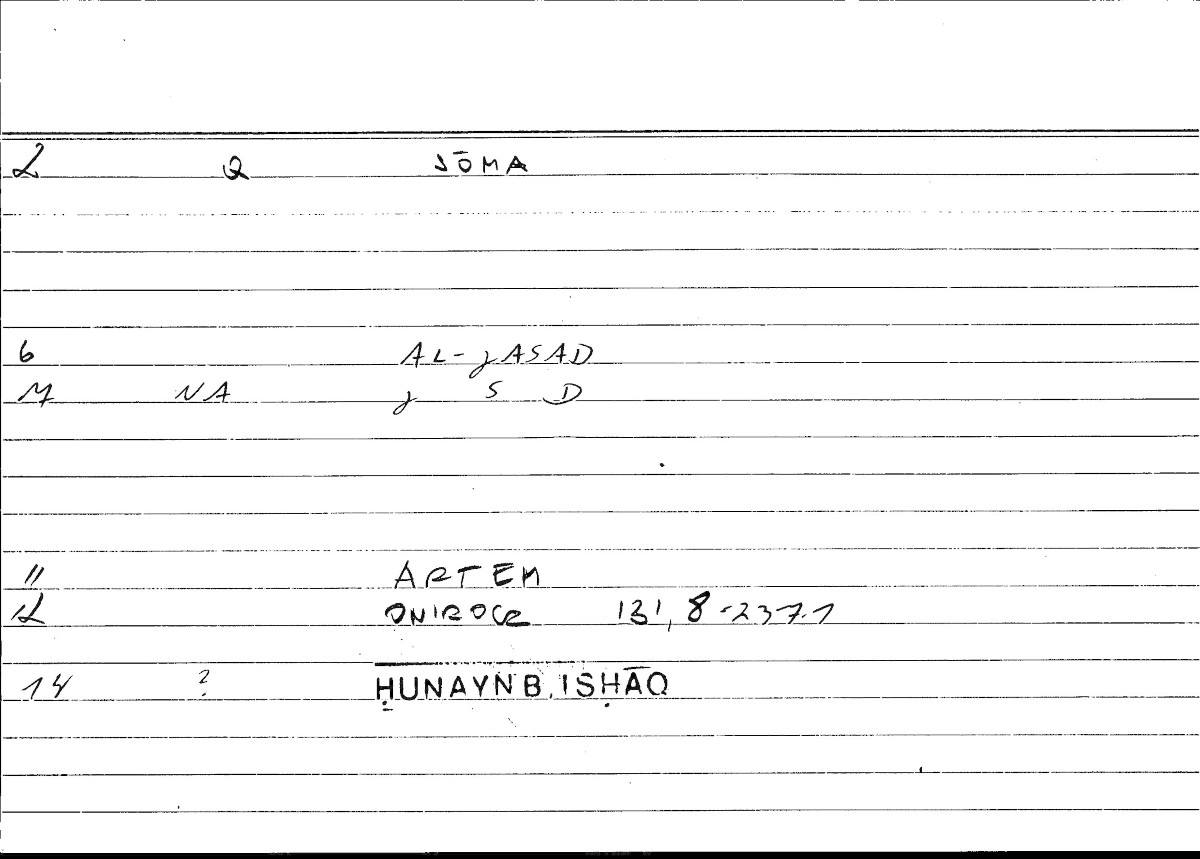 2 Q SŌMA
6 AL-JASAD
M NA J S D
11 ARTEM
12 ONIROCR 131, 8-237.1
14 ? ḤUNAYN B. ISḤĀQ